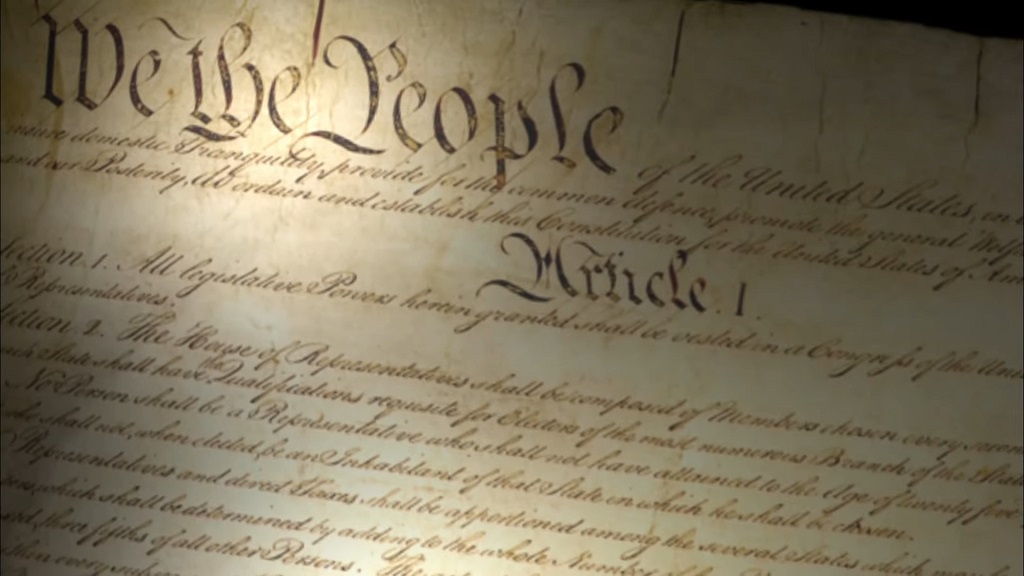 We the People of the United States, in
insure domestic Tranquility, provide for the common defence, promote the general Welfare
and our Posterity, do ordain and establish this Constitution for the United States of Am
Article. I.
Section. 1. All legislative Powers herein granted shall be vested in a Congress of the Un
Representatives.
Section. 2. The House of Representatives shall be composed of Members chosen every
each State shall have the Qualifications requisite for Electors of the most numerous Branch of the State
No Person shall be a Representative who shall not have attained to the Age of twenty five
who shall not, when elected, be an Inhabitant of that State in which he shall be chosen.
Representatives and direct Taxes shall be apportioned among the several States which may
which shall be determined by adding to the whole Number of
three fifths of all other Persons. The